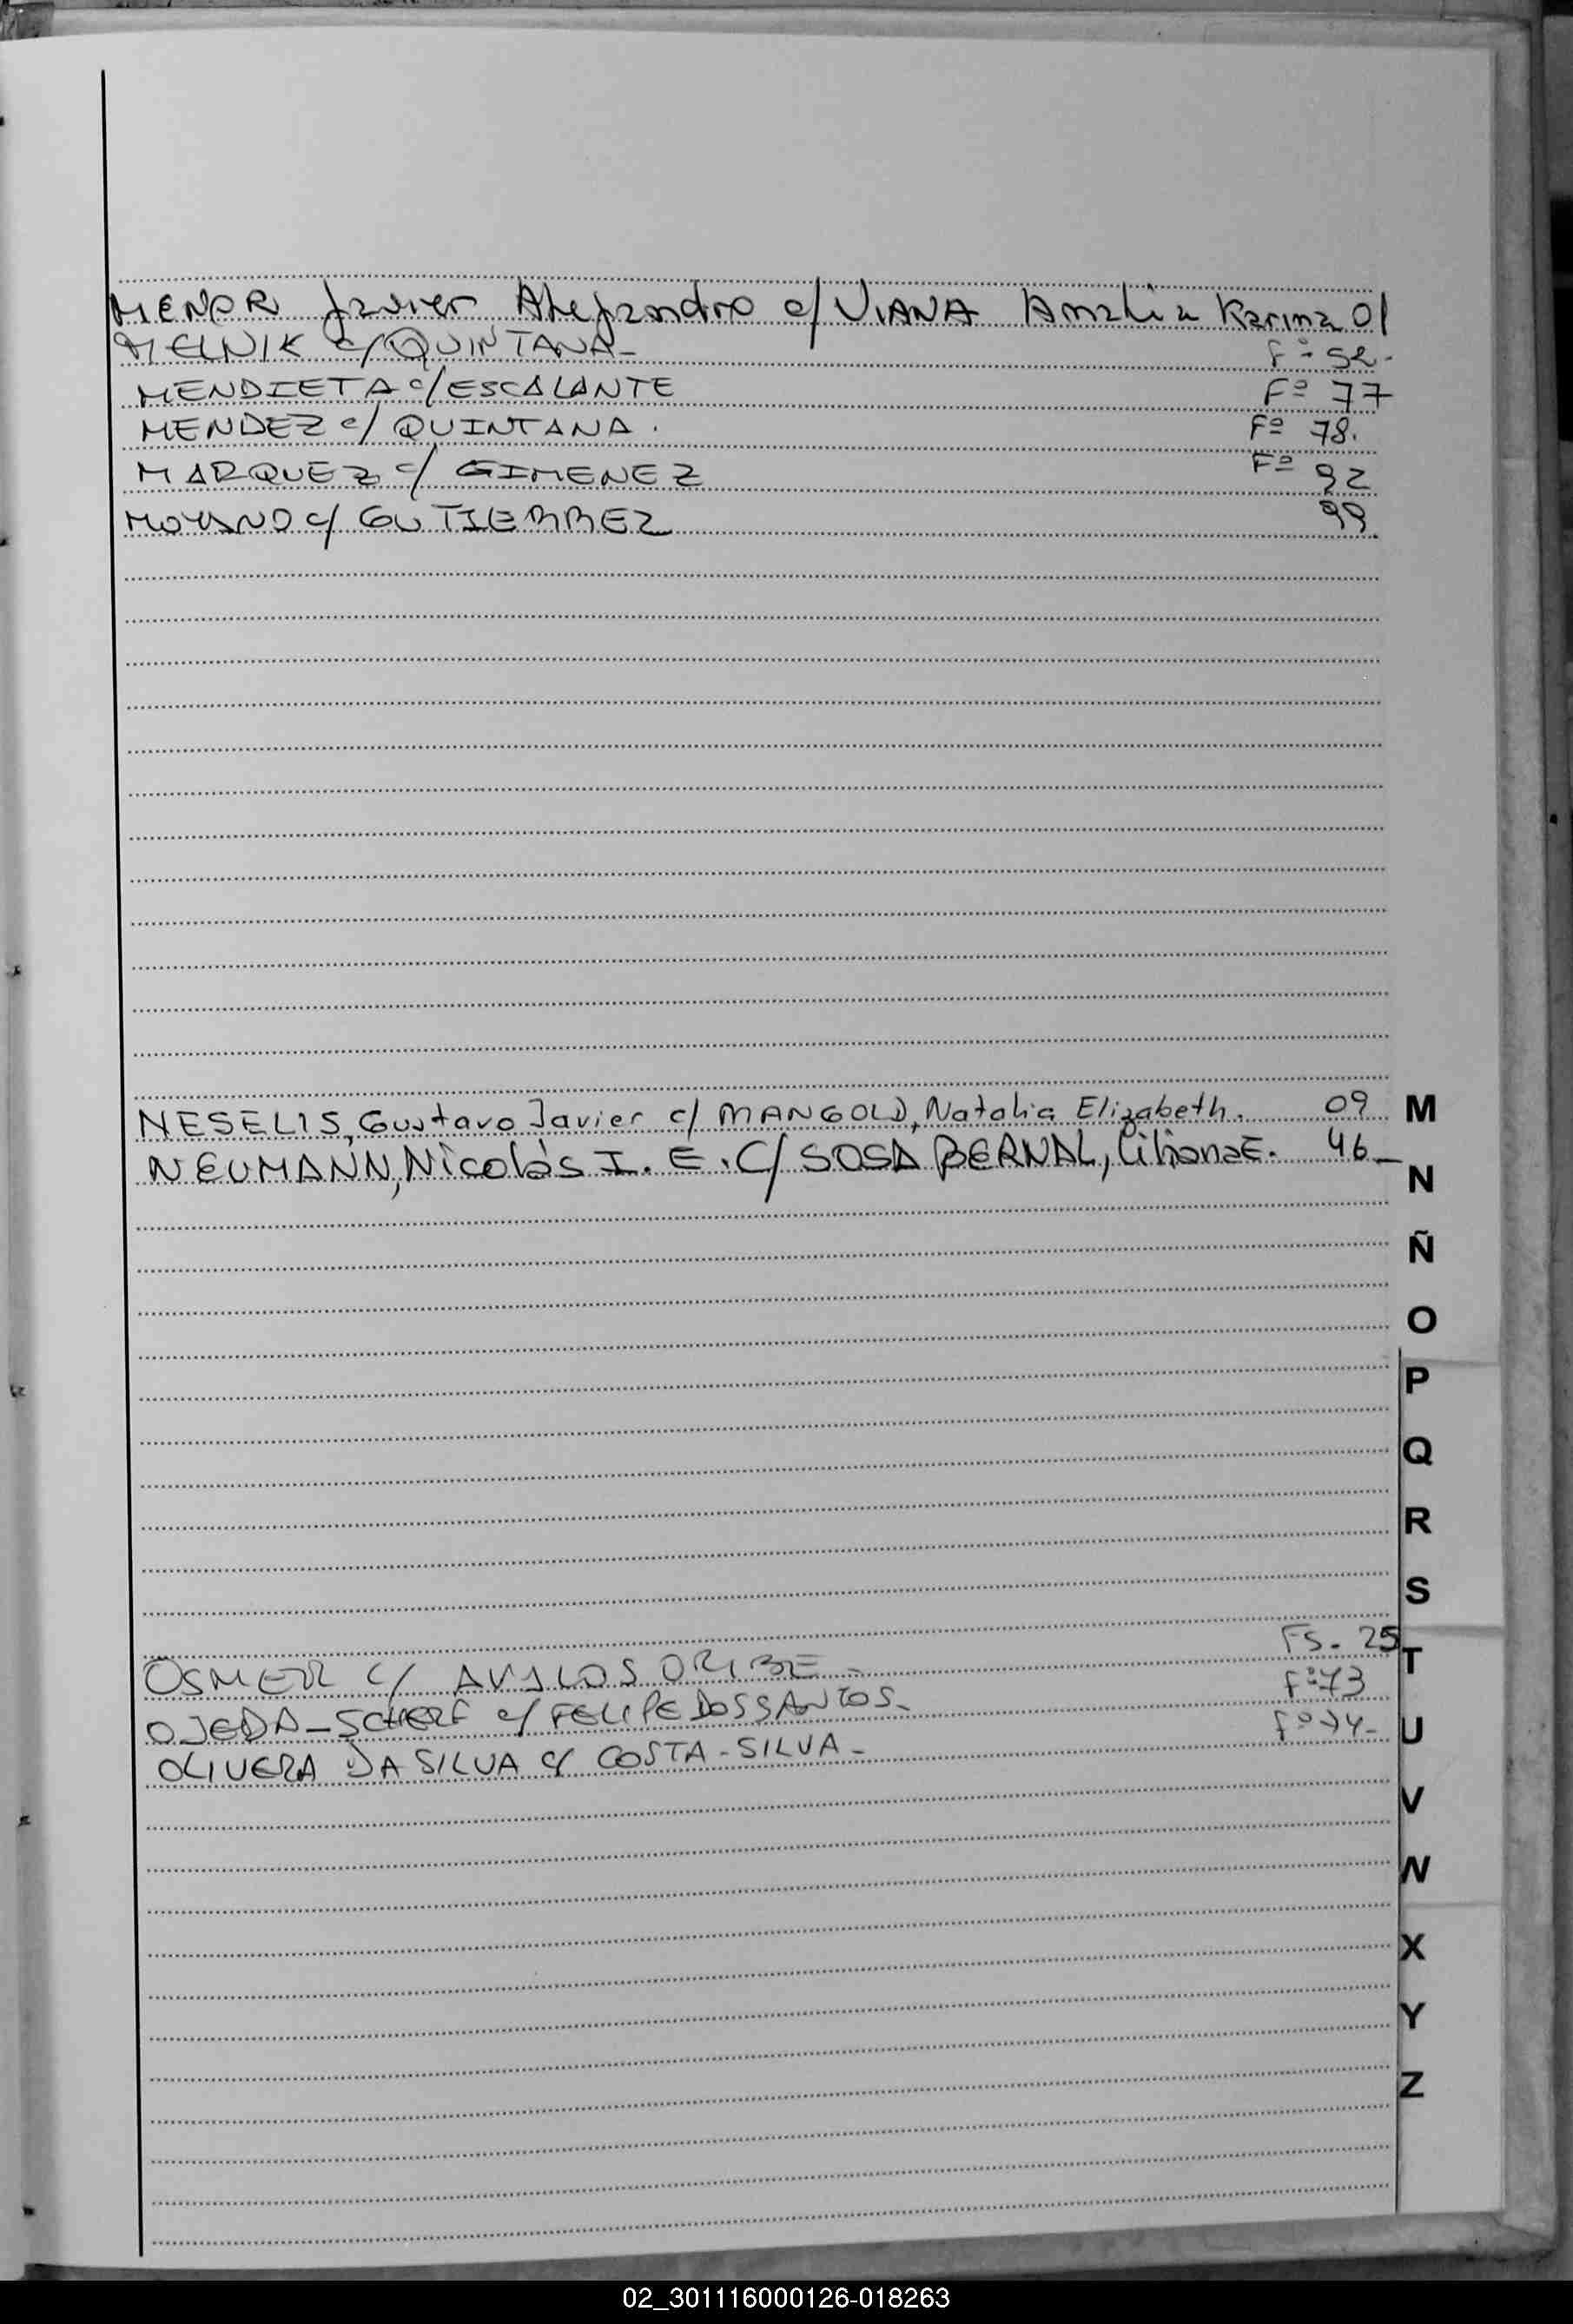 MENOR Javier Alejandro c/ VIANA Amalia Karina 01
MELNIK c/ QUINTANA- Fº 52.
MENDIETA c/ ESCALANTE Fº 77
MENDEZ c/ QUINTANA. Fº 78.
MARQUEZ c/ GIMENEZ Fº 92
MOYANO c/ GUTIERREZ 99.
NESELIS, Gustavo Javier c/ MANGOLD, Natalia Elizabeth. 09
NEUMANN, Nicolás I. E. C/ SOSA BERNAL, Liliana E. 46-
OSMER c/ AVALOS ORIBE - FS. 25
OJEDA-SCHERF c/ FELIPE DOS SANTOS- Fº 73
OLIVERA DA SILVA c/ COSTA-SILVA- Fº 74-
M
N
Ñ
O
P
Q
R
S
T
U
V
W
X
Y
Z
02_301116000126-018263